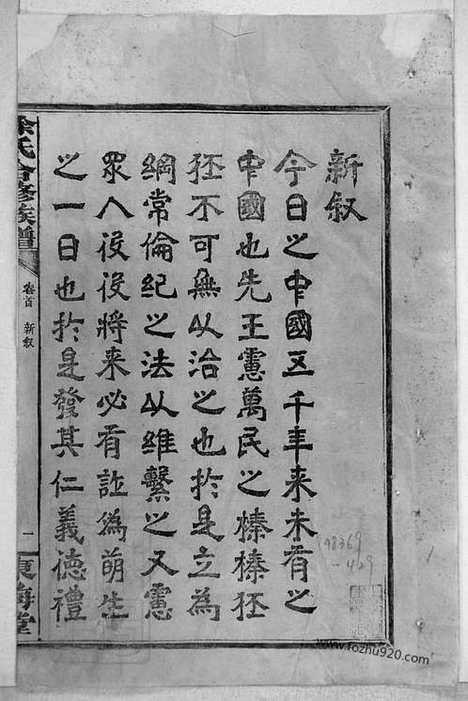 新叙
今日之中國五千年来未有之
中國也先王憲萬民之榛榛狉
狉不可無以治之也於是立為
綱常倫紀之法以維繫之又憲
眾人役役將来必有訛為萌生
之一日也於是發其仁義德禮
徐氏合修族譜
卷首 新叙
一
東海堂
www.fozhu920.com